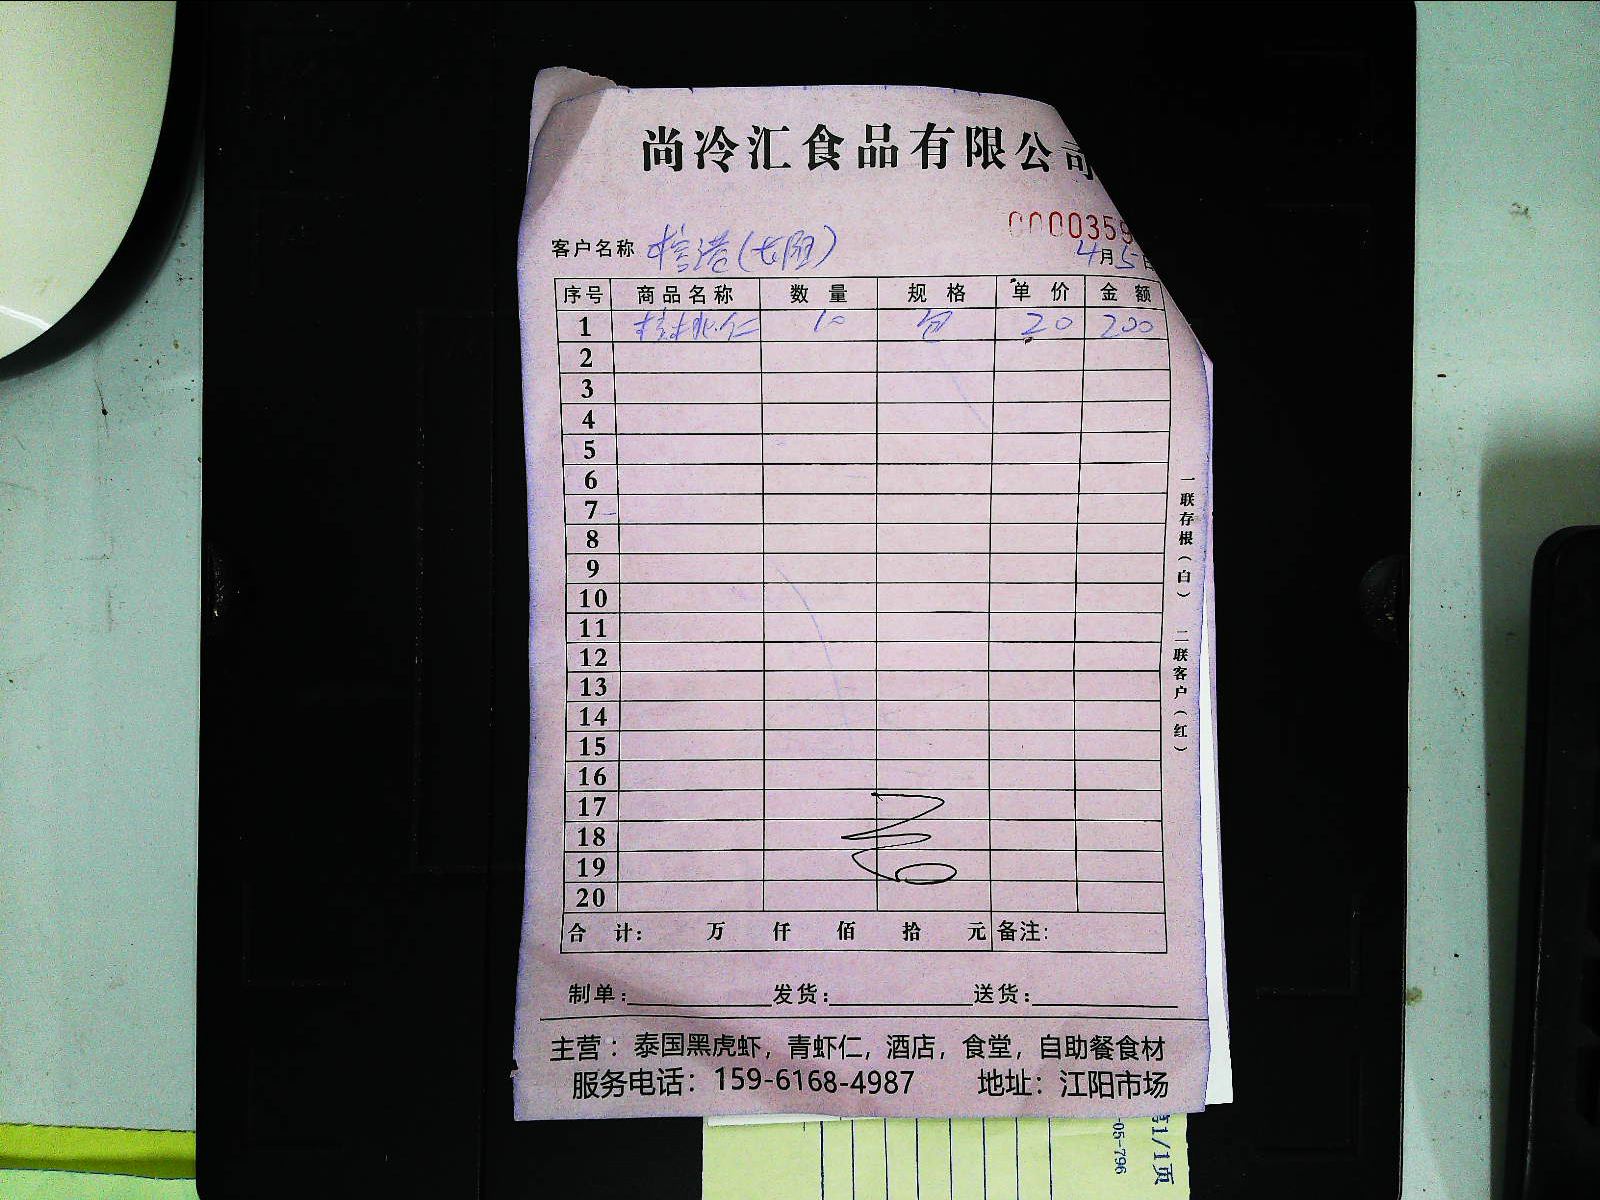 尚冷汇食品有限公司
0000359
客户名称 4月5日
序号 商品名称 数量 规格 单价 金额
1 核桃仁 10 包 20 200
2
3
4
5
6
7
8
9
10
11
12
13
14
15
16
17
18
19
20
合计: 万 仟 佰 拾 元 备注:
制单: 发货: 送货:
主营：泰国黑虎虾，青虾仁，酒店，食堂，自助餐食材
服务电话：159-6168-4987 地址：江阳市场
一联存根（白） 二联客户（红）
1/1页
-05-796